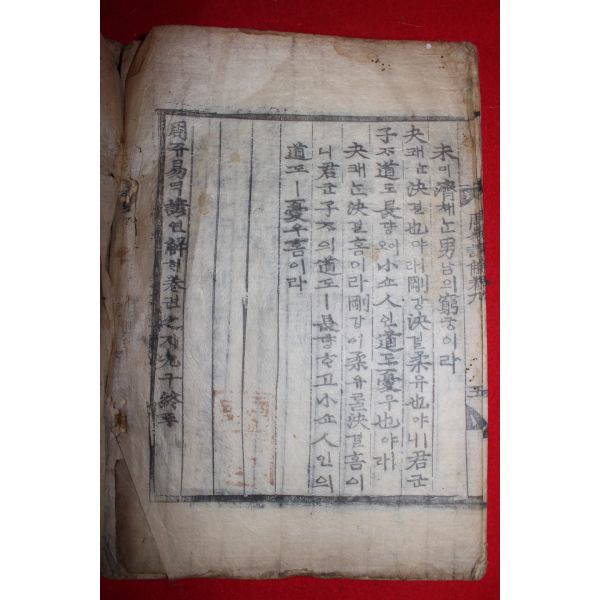 周易諺解卷九
未미濟졔ᄂᆞᆫ男남의窮궁이라
夬쾌ᄂᆞᆫ決결也야라剛강決결柔유也야니君군
子ᄌᆞ道도長댱이오小쇼人인道도憂우也야라
夬쾌ᄂᆞᆫ決결홈이라剛강이柔유ᄅᆞᆯ決결홈이
니君군子ᄌᆞ의道도ㅣ長댱ᄒᆞ고小쇼人인의
道도ㅣ憂우홈이라
周쥬易역諺언解ᄒᆡ卷권之지九구終죵